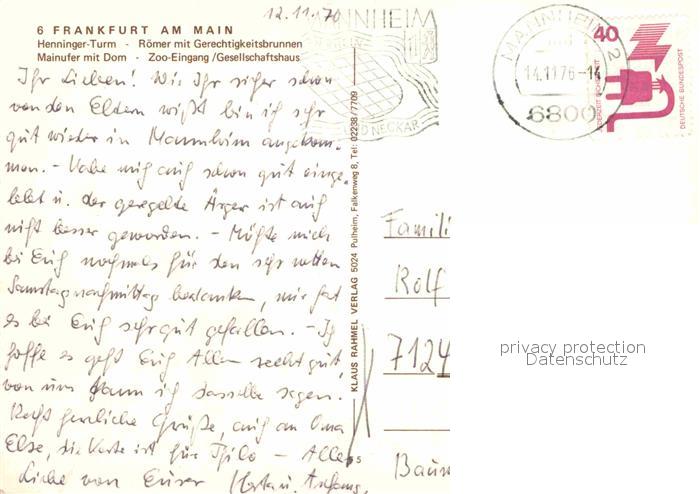 12.11.76
6 FRANKFURT AM MAIN
Henninger-Turm - Römer mit Gerechtigkeitsbrunnen
Mainufer mit Dom - Zoo-Eingang/Gesellschaftshaus
MANNHEIM
UND NECKAR
MANNHEIM 2
14.11.76-14
6800
40
JEDERZEIT SICHERHEIT
DEUTSCHE BUNDESPOST
Ihr Lieben! Wie Ihr sicher schon
von den Eltern wißt bin ich sehr
gut wieder in Mannheim angekom-
men. - Habe mich auch schon gut einge-
lebt u. der geregelte Ärger ist auch
nicht besser geworden. - Möchte mich
bei Euch nochmals für den sehr netten
Samstagnachmittag bedanken, mir hat
es bei Euch sehr gut gefallen. - Ich
hoffe es geht Euch Allen recht gut,
von uns kann ich dasselbe sagen.
Recht herzliche Grüße, auch an Oma
Else, die Karte ist für Thilo - Alles
Liebe von Eurer
KLAUS RAHMEL VERLAG 5024 Pulheim, Falkenweg 8, Tel: 02238/7709
Famili
Rolf
7124
privacy protection
Datenschutz